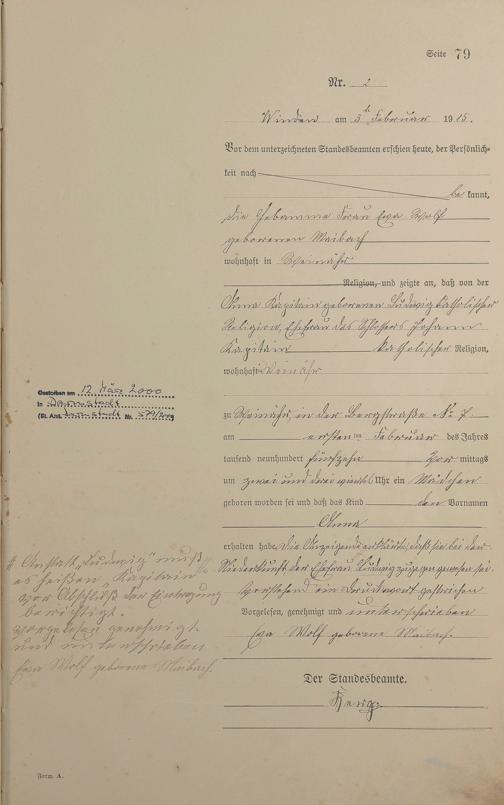 Seite 79
Nr. 2
Winden am 3ten Februar 1915.
Vor dem unterzeichneten Standesbeamten erschien heute, der Persönlich-
keit nach
be kannt,
die Hebamme Frau Eva Wolf
geborenen Maibach
wohnhaft in Weinähr
Religion, und zeigte an, daß von der
Anna Kapitain geborenen Ludwig katholischer
Religion, Ehefrau des Schlossers Johann
Kapitain katholischer Religion,
wohnhaft Weinähr
zu Weinähr, in der Bergstraße No 7
am ersten Februar des Jahres
tausend neunhundert fünfzehn Vor mittags
um zwei und drei viertel Uhr ein Mädchen
geboren worden sei und daß das Kind den Vornamen
Anna
erhalten habe. Die Anzeigende erklärte, daß sie bei der
Niederkunft der Ehefrau Ludwig zugegen gewesen sei.
Vorstehend ein Druckwort gestrichen
Vorgelesen, genehmigt und unterschrieben
Eva Wolf geborene Maibach.
Der Standesbeamte.
Gestorben am 12. März 2000
in Darmstadt
(St. Amt Darmstadt Nr.
Anstatt "Ludwig" muß
es heißen "Kapitain"
vor Abschluß der Eintragung
berichtigt.
vorgelesen genehmigt
und unterschrieben
Eva Wolf geborene Maibach.
Form. A.